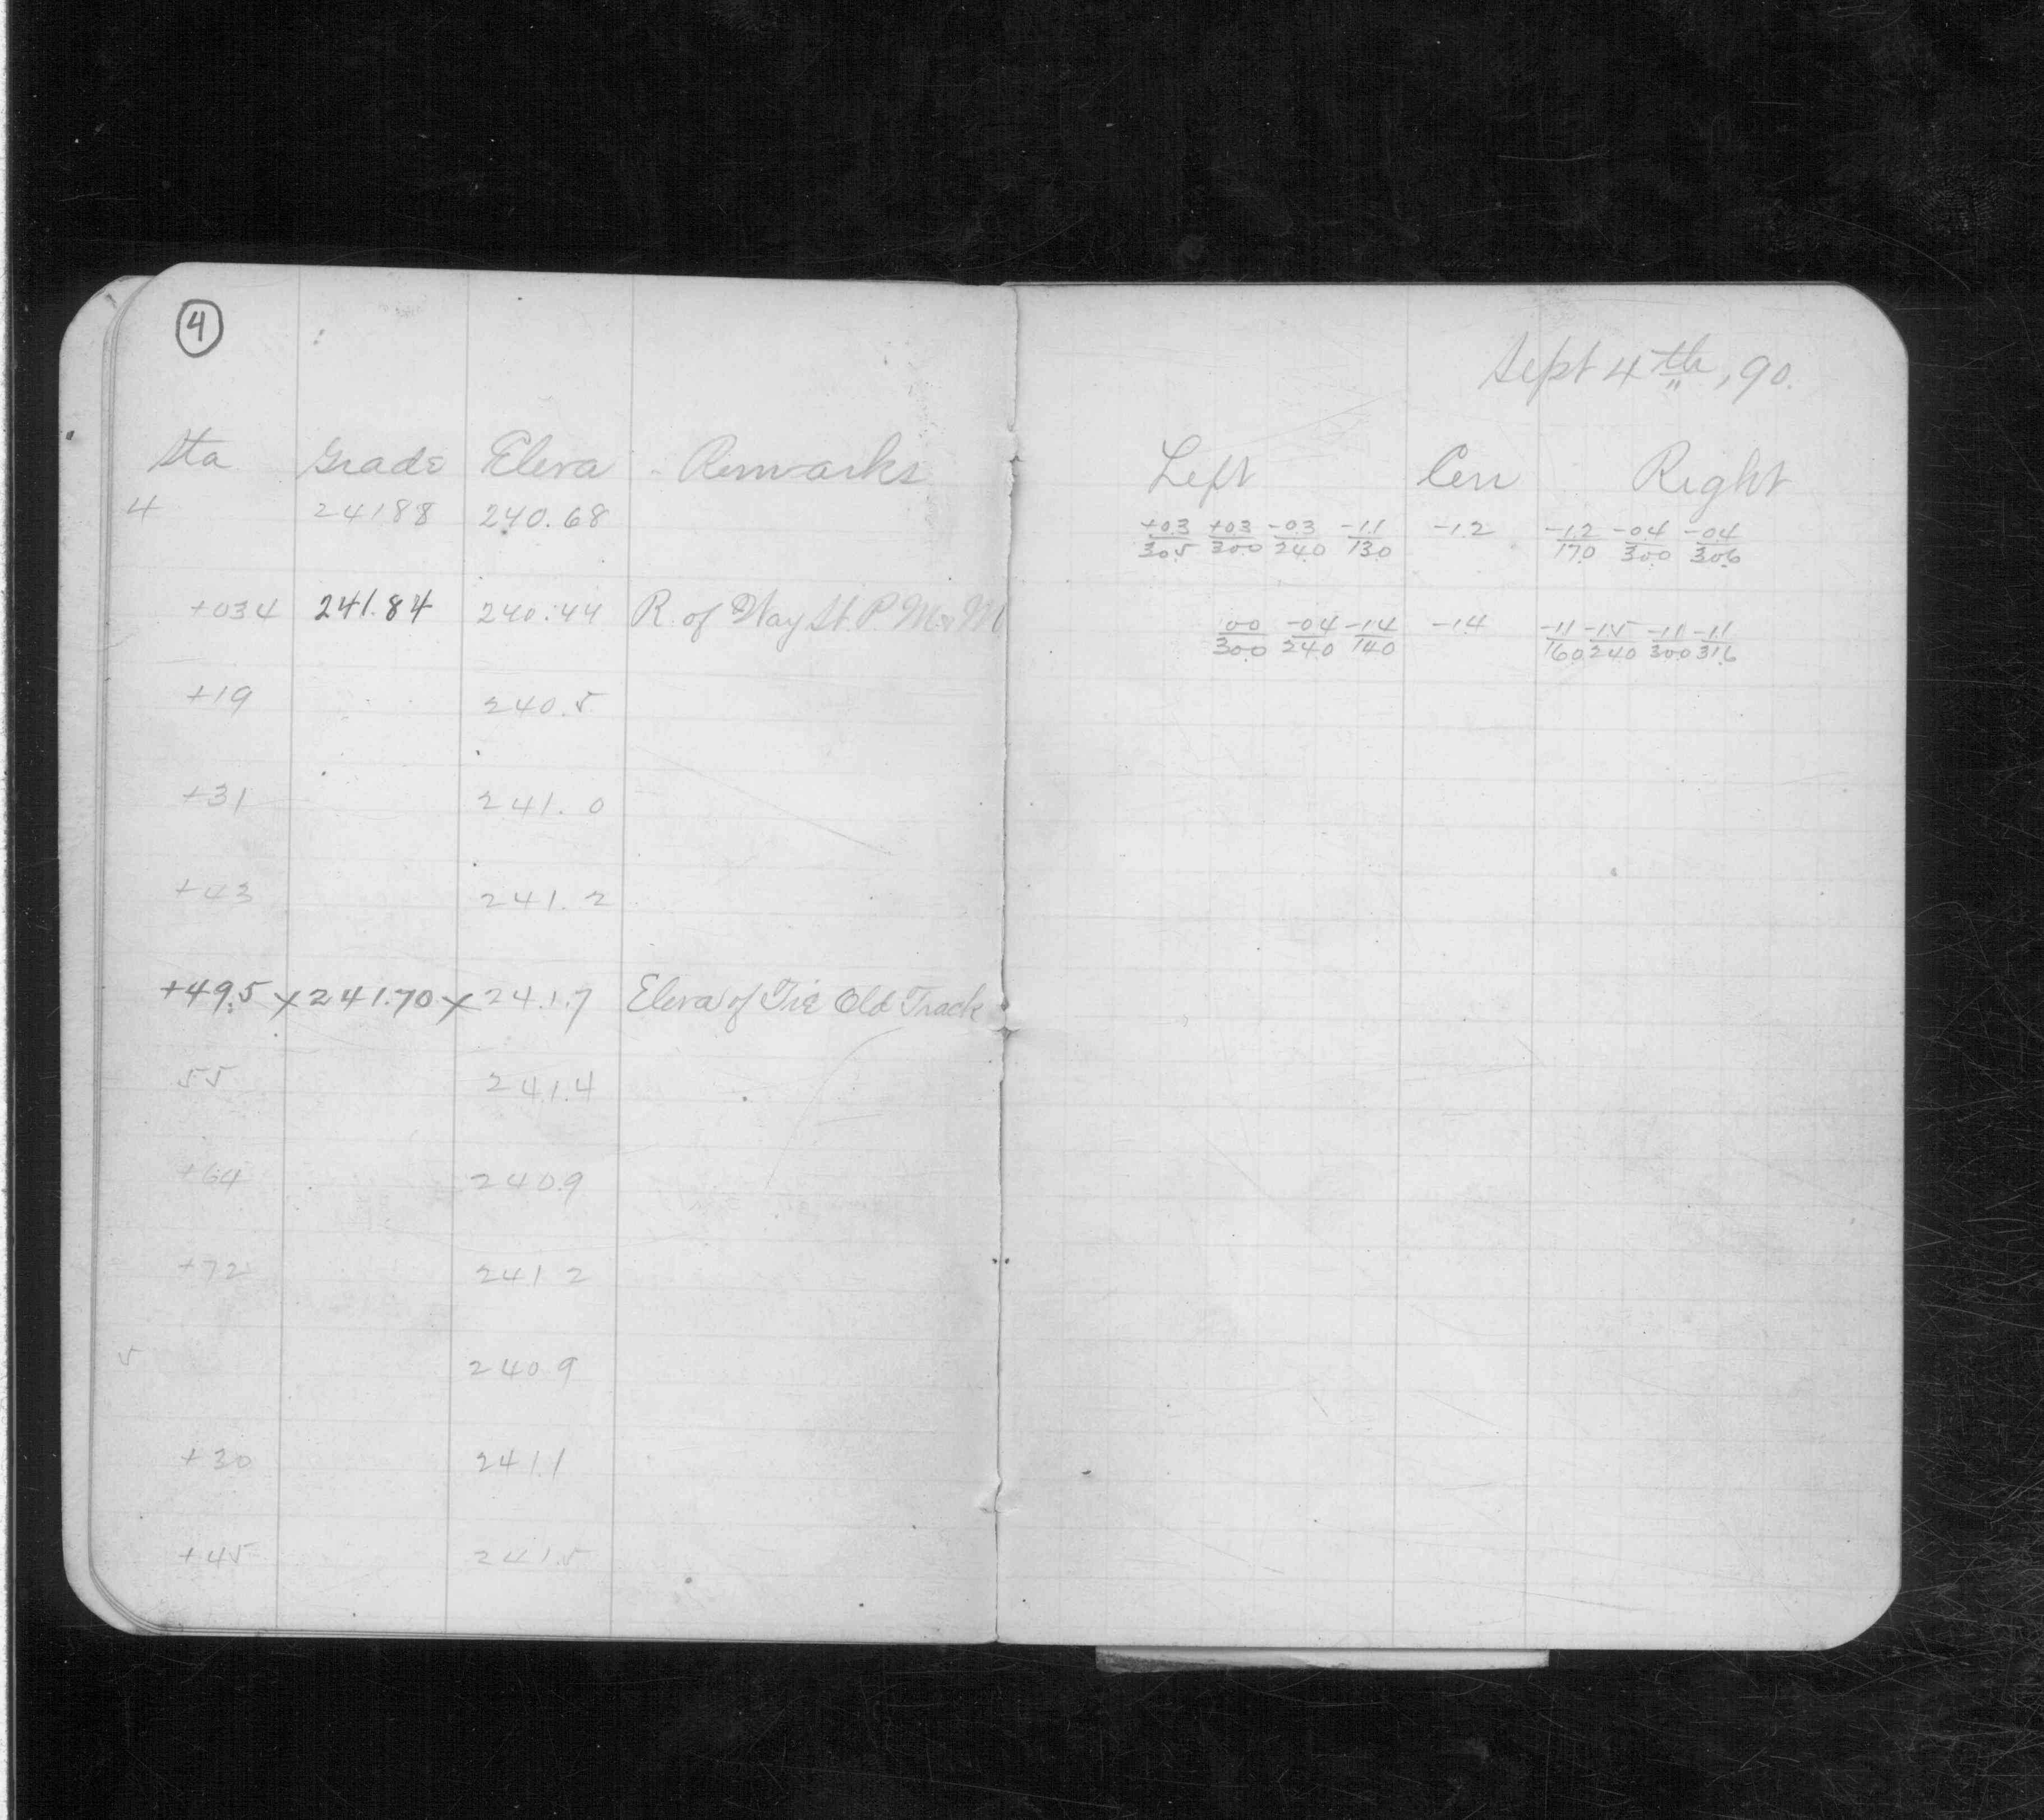 4
Sept 4th, 90.
Sta Grade Eleva Remarks Left Cen Right
4 241.88 240.68 +0.3/30.5 +0.3/30.0 -0.3/24.0 -1.1/13.0 -1.2 -1.2/17.0 -0.4/30.0 -0.4/30.6
+03.4 241.84 240.44 R. of Way St. P. M. & M 0.0/30.0 -0.4/24.0 -1.4/14.0 -1.4 -1.1/16.0 -1.5/24.0 -1.1/30.0 -1.1/31.6
+19 240.5
+31 241.0
+43 241.2
+49.5 x 241.70 x 241.7 Eleva of Tie Old Track
55 241.4
+64 240.9
+72 241.2
5 240.9
+30 241.1
+45 241.5